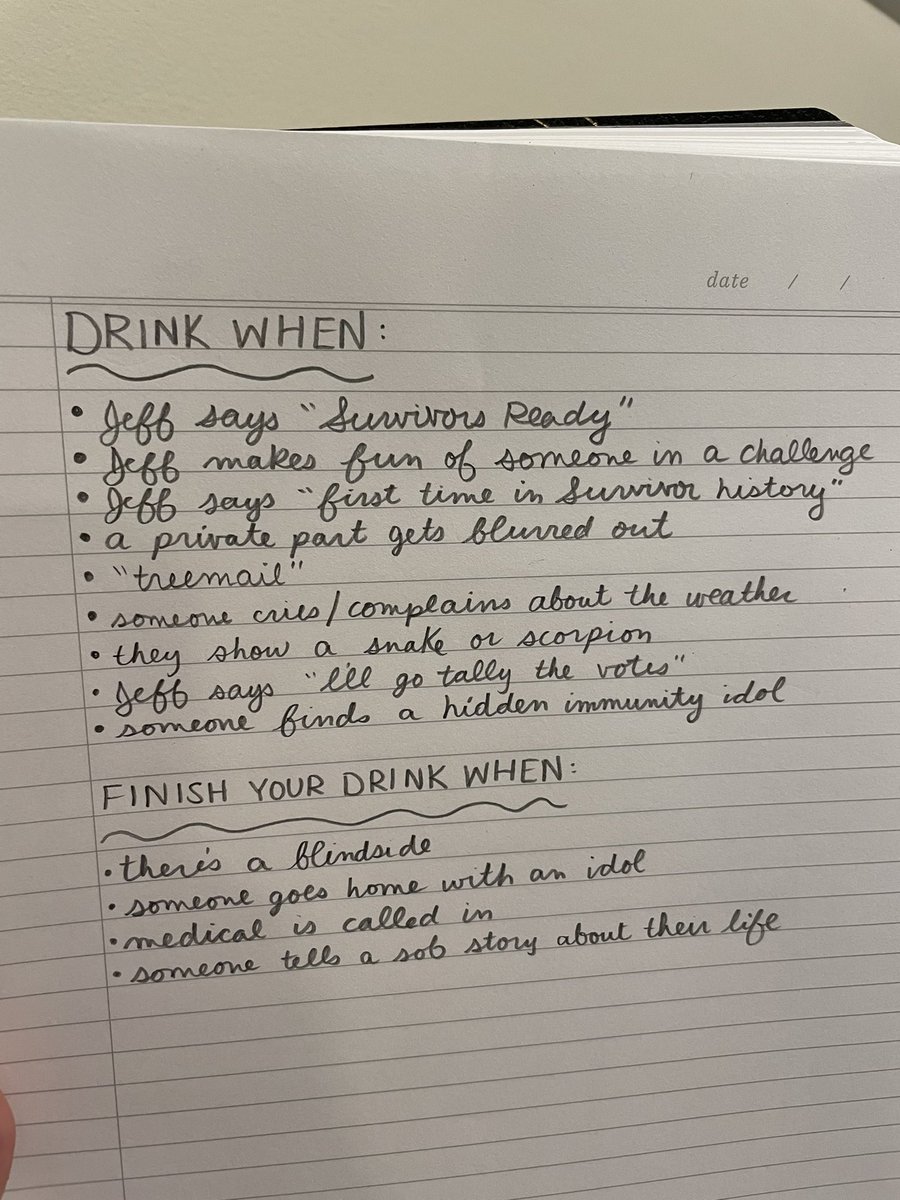 date / /
DRINK WHEN:
• Jeff says "Survivors Ready"
• Jeff makes fun of someone in a challenge
• Jeff says "first time in Survivor history"
• a private part gets blurred out
• "treemail"
• someone cries/complains about the weather
• they show a snake or scorpion
• Jeff says "I'll go tally the votes"
• someone finds a hidden immunity idol
FINISH YOUR DRINK WHEN:
• there's a blindside
• someone goes home with an idol
• medical is called in
• someone tells a sob story about their life